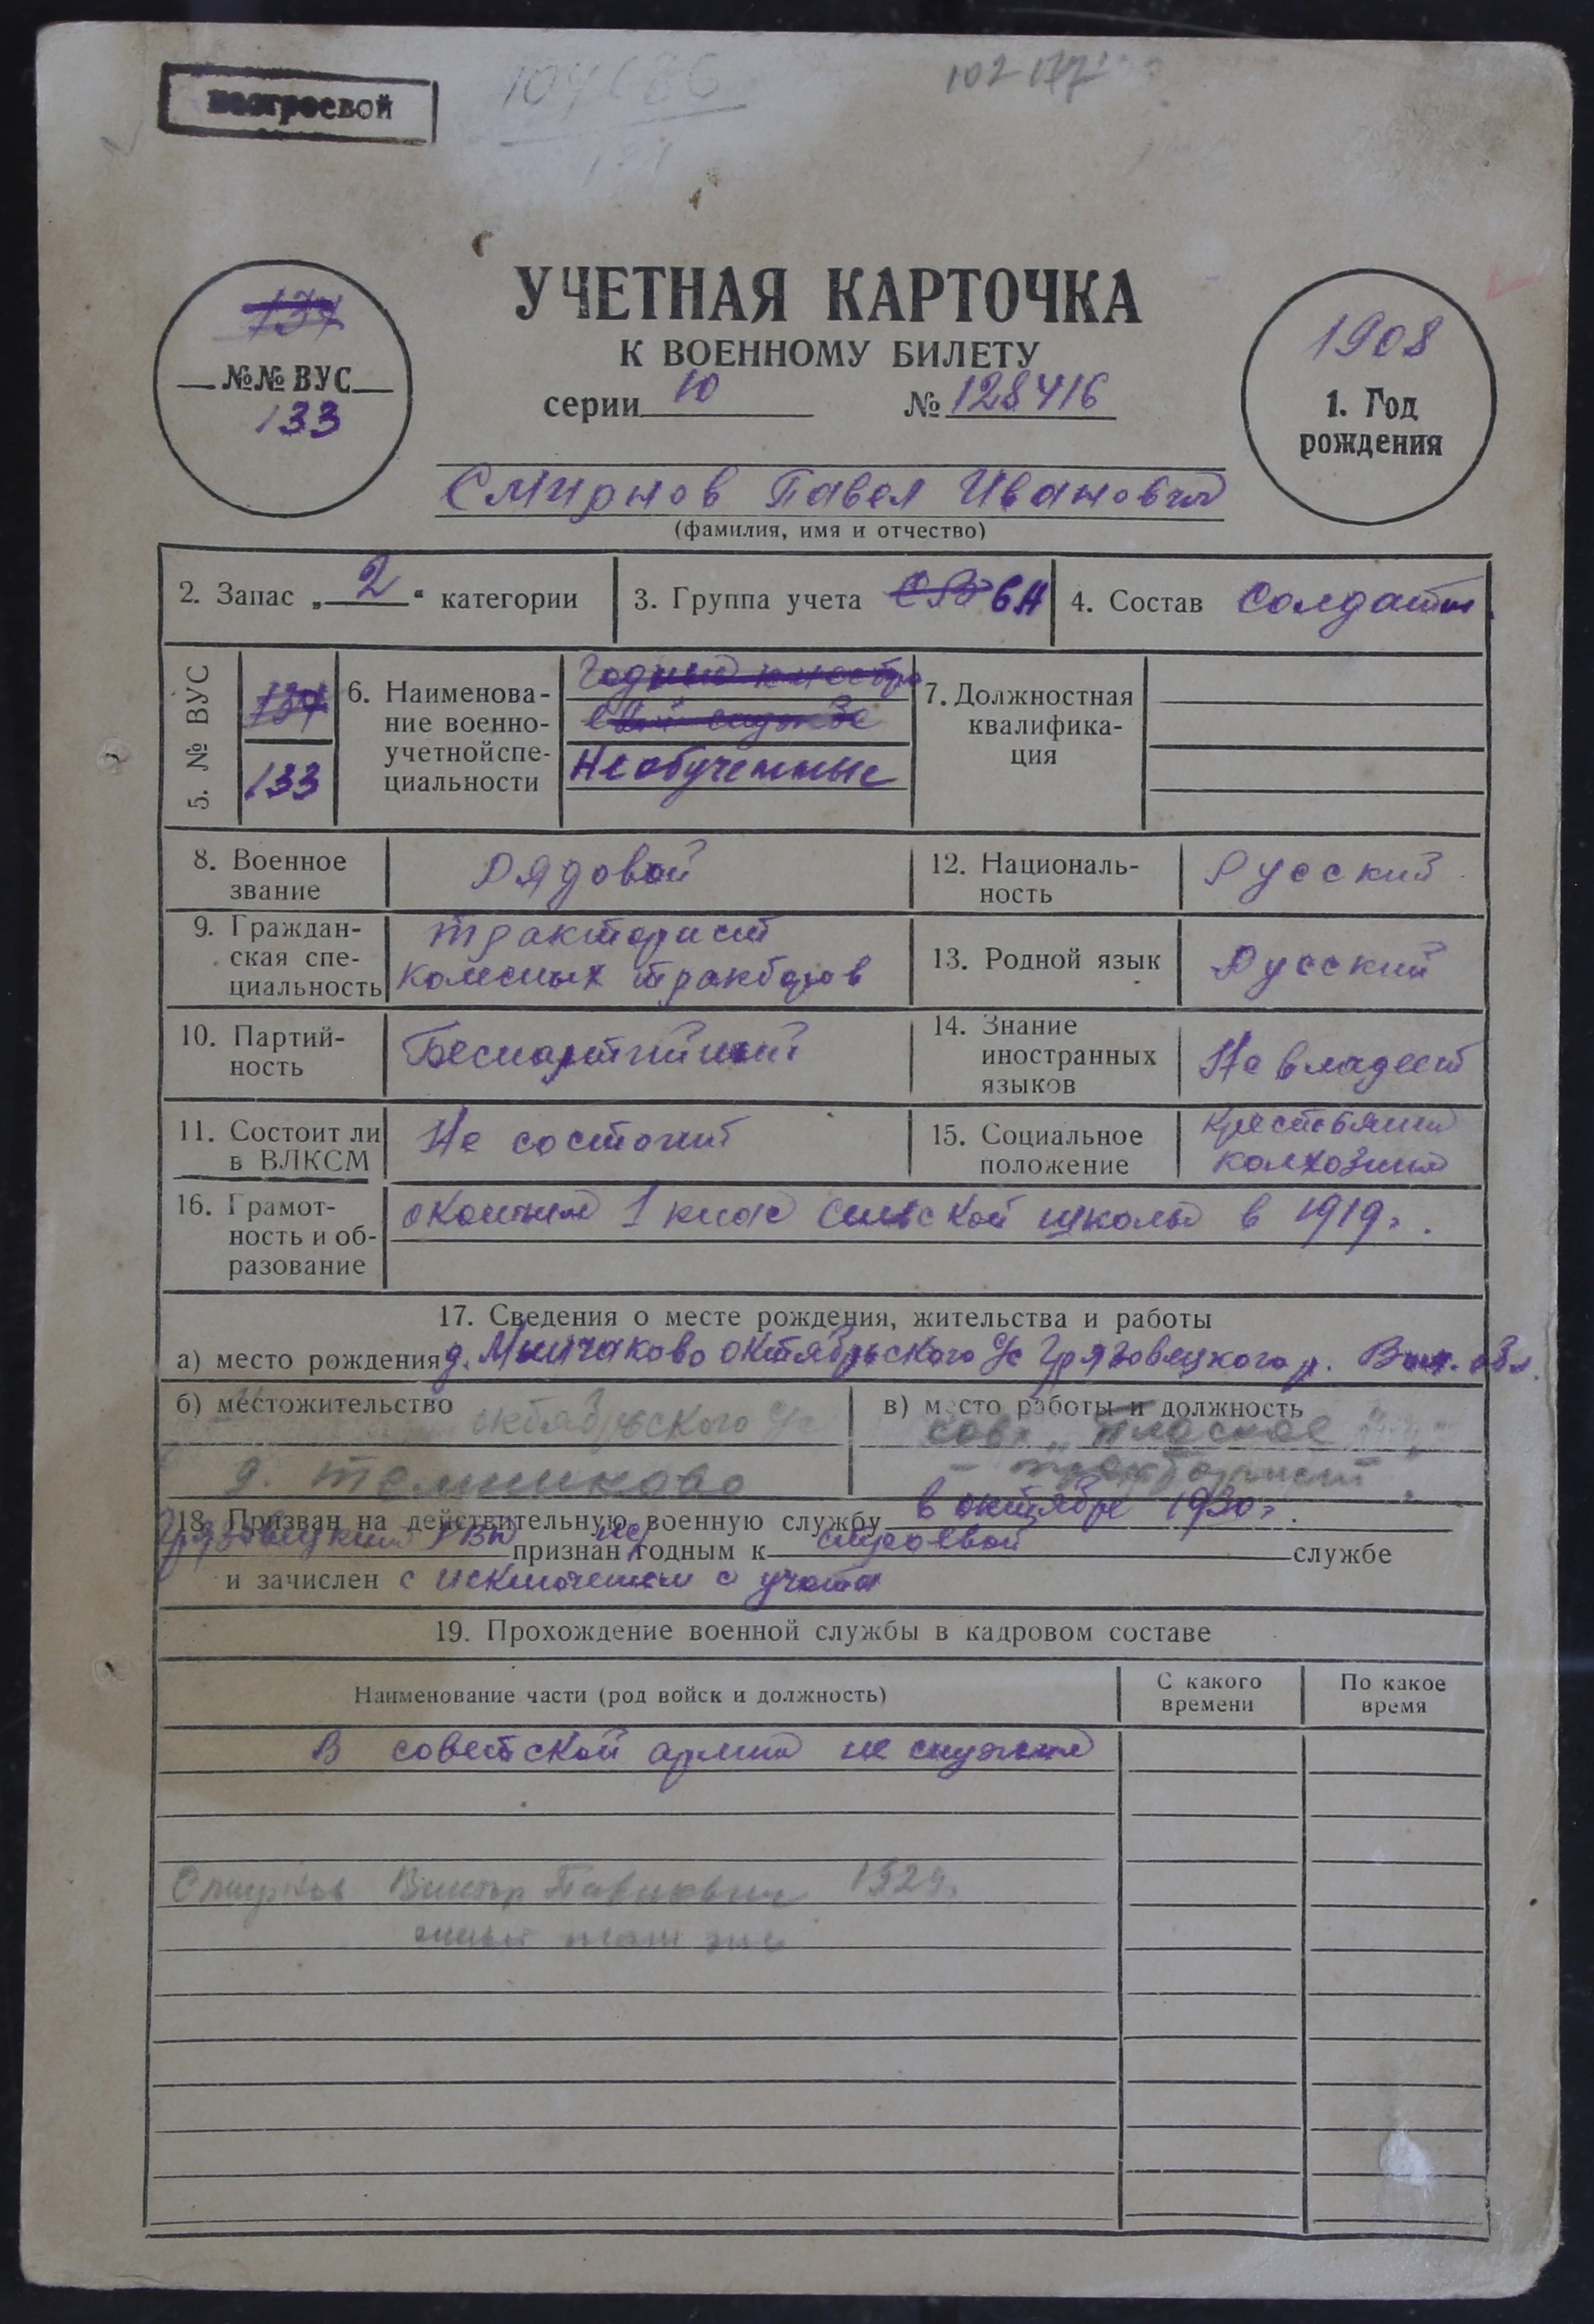 нестроевой
УЧЕТНАЯ КАРТОЧКА
К ВОЕННОМУ БИЛЕТУ
серии 10 № 128416
134
№№ ВУС
133
1908
1. Год
рождения
Смирнов Павел Иванович
(фамилия, имя и отчество)
2. Запас „2“ категории
3. Группа учета ВН
4. Состав Солдаты
5. № ВУС
134
133
6. Наименова-
ние военно-
учетной спе-
циальности
Годные
службе
Необученные
7. Должностная
квалифика-
ция
8. Военное
звание
Рядовой
12. Националь-
ность
Русский
9. Граждан-
ская спе-
циальность
тракторист
колесных тракторов
13. Родной язык
Русский
10. Партий-
ность
Беспартийный
14. Знание
иностранных
языков
Не владеет
11. Состоит ли
в ВЛКСМ
Не состоит
15. Социальное
положение
крестьянин
колхозник
16. Грамот-
ность и об-
разование
окончил 1 клас сельской школы в 1919г.
17. Сведения о месте рождения, жительства и работы
а) место рождения д. Октябрьского с/с Грязовецкого р. Вол. обл.
б) местожительство
октябрьского с/с
д.
в) место работы и должность
совх. „Плоское“
- тракторист
18. Призван на действительную военную службу в октябре 1930г.
Грязовецким РВК признан не годным к строевой службе
и зачислен с исключением с учета
19. Прохождение военной службы в кадровом составе
Наименование части (род войск и должность)
С какого
времени
По какое
время
В советской армии не служил
Смирнов Виктор Павлович